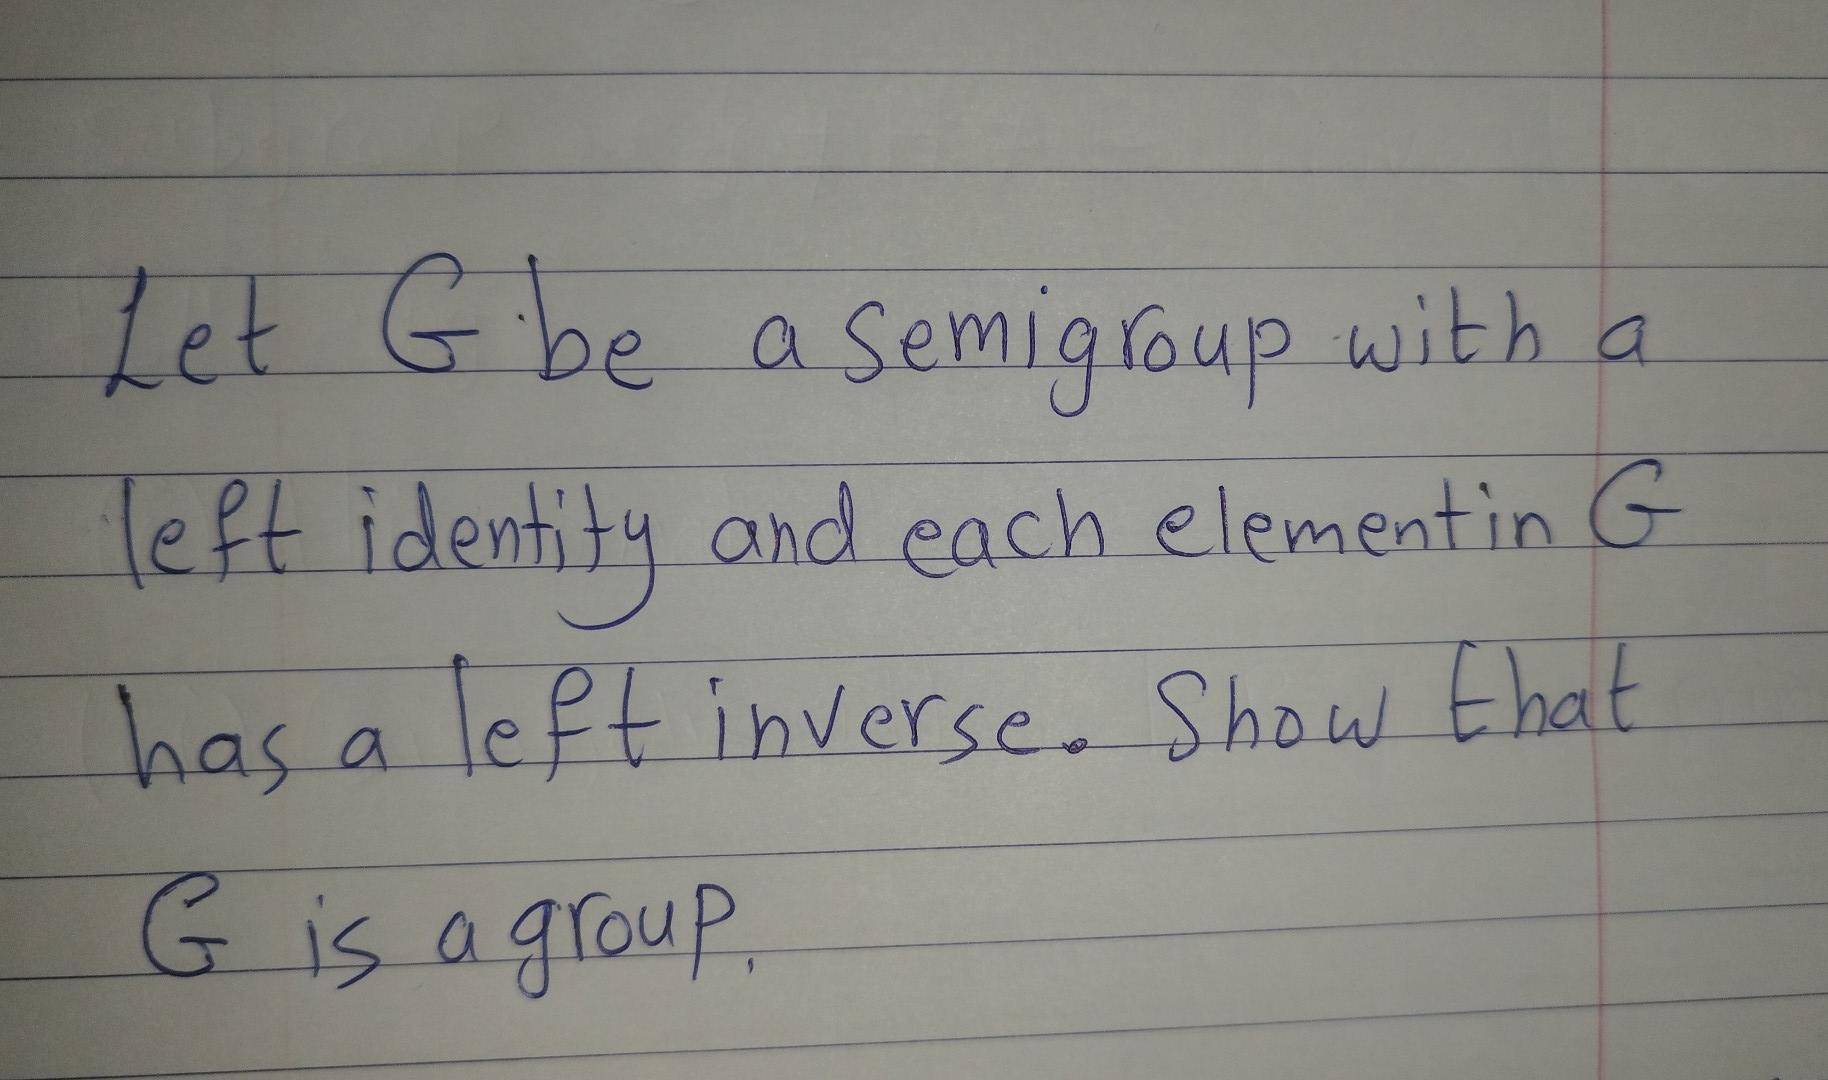 Let G be a semigroup with a
left identity and each element in G
has a left inverse. Show that
G is a group.